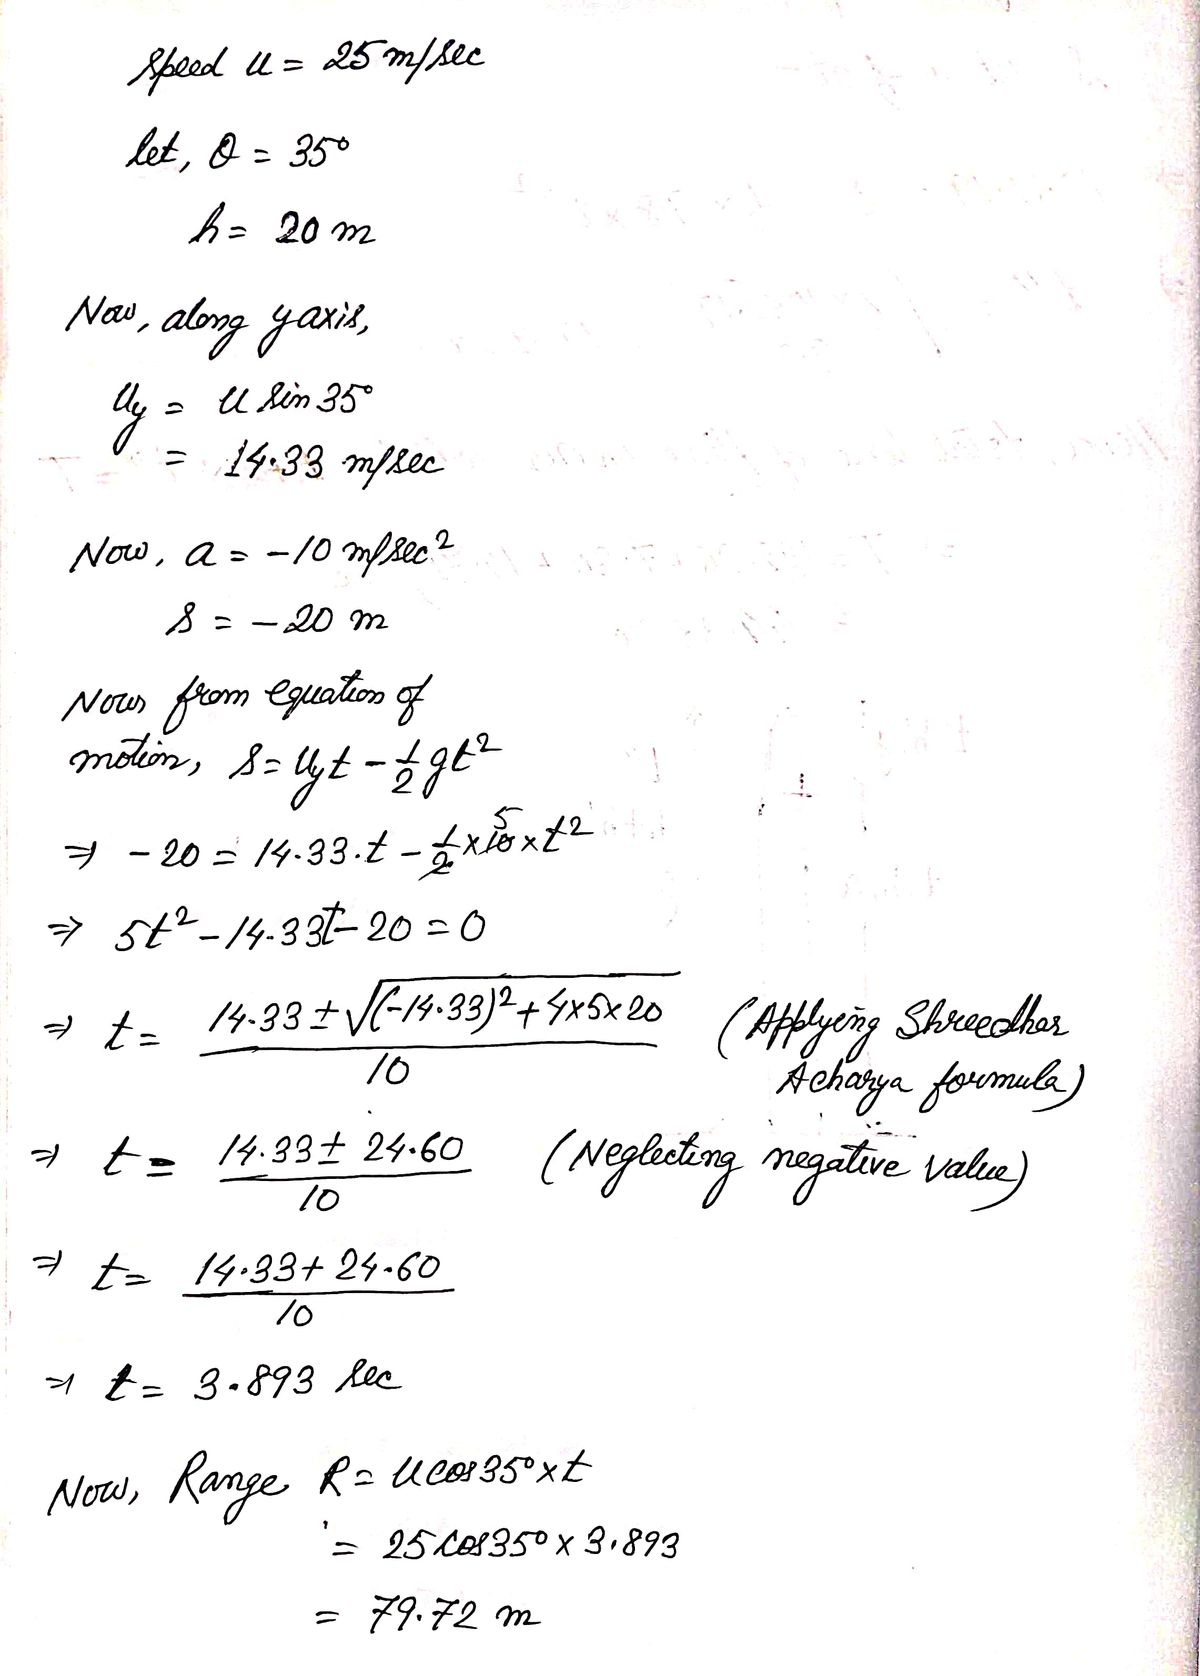 Speed u = 25 m/sec
let, θ = 35°
h = 20 m
Now, along y axis,
uy = u sin 35°
= 14.33 m/sec
Now, a = -10 m/sec²
s = -20 m
Now from equation of
motion, s = uyt - 1/2 gt²
⇒ -20 = 14.33.t - 1/2 × 10 5 × t²
⇒ 5t² - 14.33t - 20 = 0
⇒ t = 14.33 ± √(-14.33)² + 4×5×20 / 10 (Applying Shreedhar
Acharya formula)
⇒ t = 14.33 ± 24.60 / 10 (Neglecting negative value)
⇒ t = 14.33 + 24.60 / 10
⇒ t = 3.893 sec
Now, Range R = u cos 35° × t
= 25 cos 35° × 3.893
= 79.72 m